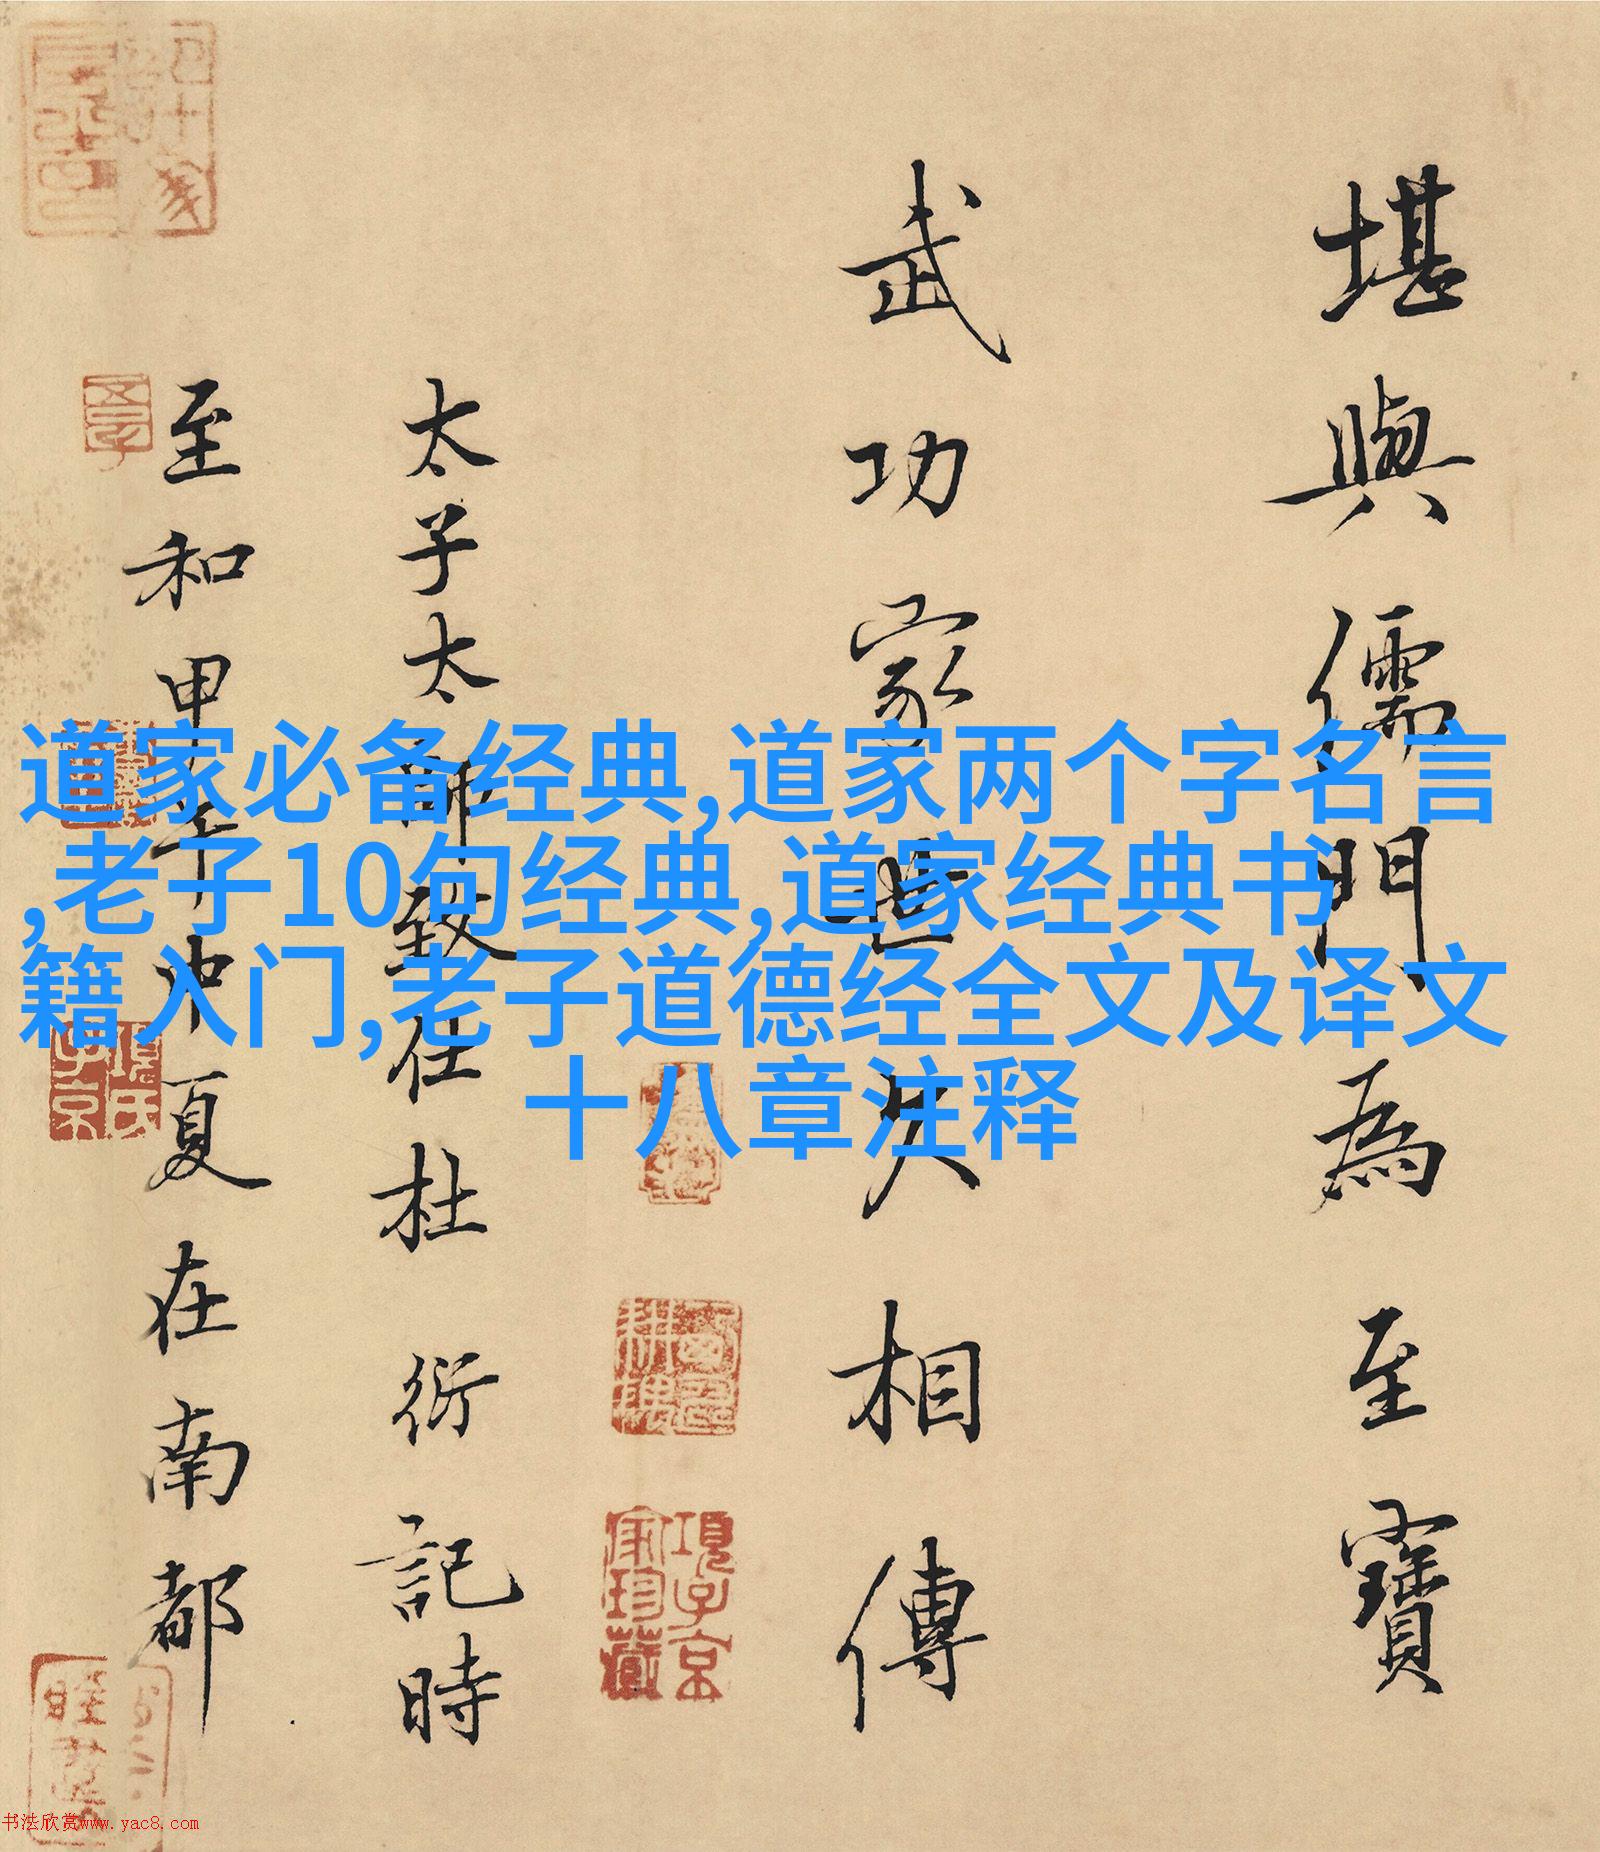 堪輿儒門為至寶
武功家世久相傳
太子太師致仕杜衍記時
至和甲午中夏在南都
道家必备经典,道家两个字名言
,老子10句经典,道家经典书
籍入门,老子道德经全文及译文
十八章注释
項子京家珍藏
項氏子京
书法欣赏www.yac8.com